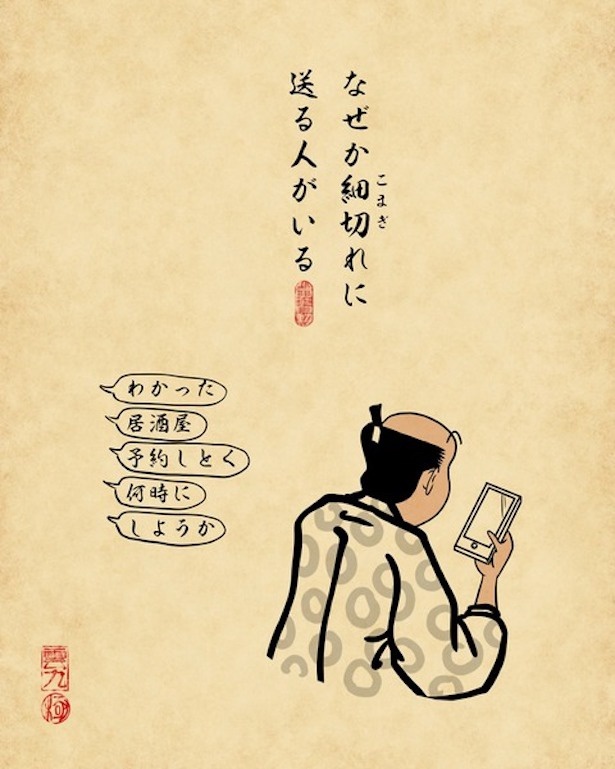 なぜか細切れに
こまぎ
送る人がいる
わかった
居酒屋
予約しとく
何時に
しようか